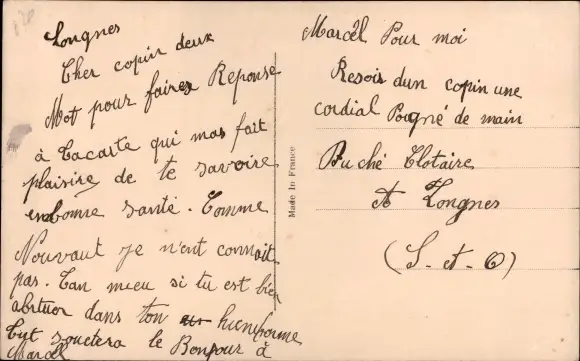 Longnes
Cher copin deux
Mot pour faires Reponse
à Tacarte qui mas fait
plaisire de te savoire
enbonne santé. Comme
Nouvaut je n'ent connait
pas. Tan mieu si tu est bien
abituer dans ton
Tut souetera le Bonjour à
Marcel
Made In France
Marcel Pour moi
Resois dun copin une
cordial Pogné de main
Buché Clotaire
A Longnes
(S-et-O)